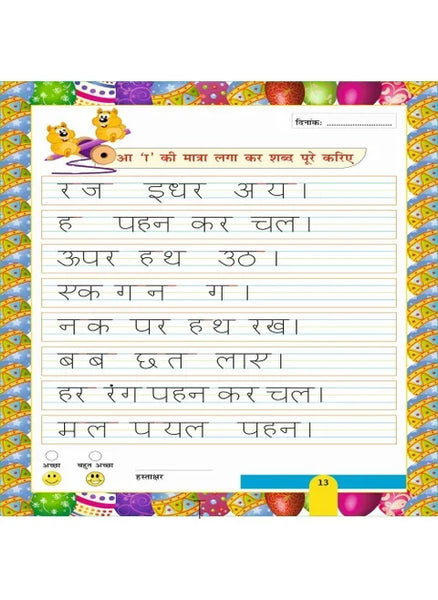 दिनांकः ........................
आ ‘ा’ की मात्रा लगा कर शब्द पूरे करिए
र ज इधर अ य।
ह पहन कर चल।
ऊपर ह थ उठ ।
एक ग न ग ।
न क पर ह थ रख।
ब ब छ त लाए।
हर रंग पहन कर चल।
म ल प यल पहन।
अच्छा बहुत अच्छा
हस्ताक्षर
13